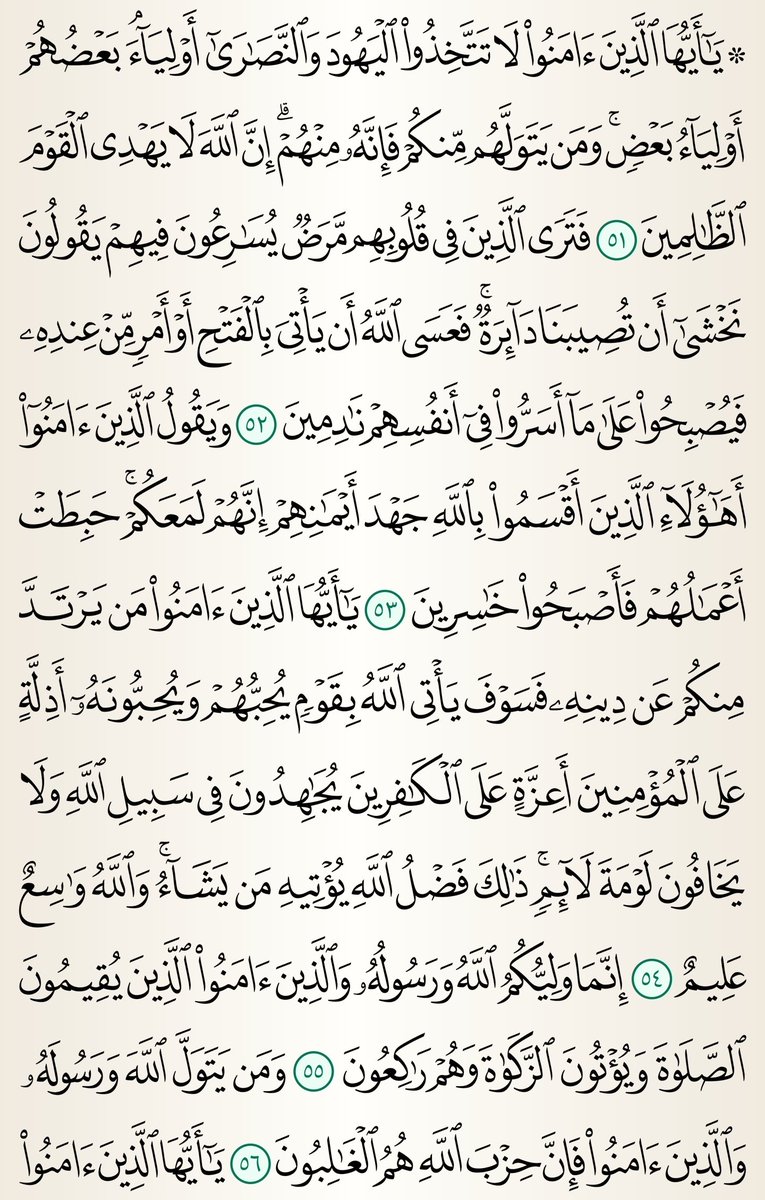 ۞ يَٰٓأَيُّهَا ٱلَّذِينَ ءَامَنُوا۟ لَا تَتَّخِذُوا۟ ٱلْيَهُودَ وَٱلنَّصَٰرَىٰٓ أَوْلِيَآءَ ۘ بَعْضُهُمْ
أَوْلِيَآءُ بَعْضٍ ۚ وَمَن يَتَوَلَّهُم مِّنكُمْ فَإِنَّهُۥ مِنْهُمْ ۗ إِنَّ ٱللَّهَ لَا يَهْدِى ٱلْقَوْمَ
ٱلظَّٰلِمِينَ ٥١ فَتَرَى ٱلَّذِينَ فِى قُلُوبِهِم مَّرَضٌ يُسَٰرِعُونَ فِيهِمْ يَقُولُونَ
نَخْشَىٰٓ أَن تُصِيبَنَا دَآئِرَةٌ ۚ فَعَسَى ٱللَّهُ أَن يَأْتِىَ بِٱلْفَتْحِ أَوْ أَمْرٍ مِّنْ عِندِهِۦ
فَيُصْبِحُوا۟ عَلَىٰ مَآ أَسَرُّوا۟ فِىٓ أَنفُسِهِمْ نَٰدِمِينَ ٥٢ وَيَقُولُ ٱلَّذِينَ ءَامَنُوٓا۟
أَهَٰٓؤُلَآءِ ٱلَّذِينَ أَقْسَمُوا۟ بِٱللَّهِ جَهْدَ أَيْمَٰنِهِمْ إِنَّهُمْ لَمَعَكُمْ ۚ حَبِطَتْ
أَعْمَٰلُهُمْ فَأَصْبَحُوا۟ خَٰسِرِينَ ٥٣ يَٰٓأَيُّهَا ٱلَّذِينَ ءَامَنُوا۟ مَن يَرْتَدَّ
مِنكُمْ عَن دِينِهِۦ فَسَوْفَ يَأْتِى ٱللَّهُ بِقَوْمٍ يُحِبُّهُمْ وَيُحِبُّونَهُۥٓ أَذِلَّةٍ
عَلَى ٱلْمُؤْمِنِينَ أَعِزَّةٍ عَلَى ٱلْكَٰفِرِينَ يُجَٰهِدُونَ فِى سَبِيلِ ٱللَّهِ وَلَا
يَخَافُونَ لَوْمَةَ لَآئِمٍ ۚ ذَٰلِكَ فَضْلُ ٱللَّهِ يُؤْتِيهِ مَن يَشَآءُ ۚ وَٱللَّهُ وَٰسِعٌ
عَلِيمٌ ٥٤ إِنَّمَا وَلِيُّكُمُ ٱللَّهُ وَرَسُولُهُۥ وَٱلَّذِينَ ءَامَنُوا۟ ٱلَّذِينَ يُقِيمُونَ
ٱلصَّلَوٰةَ وَيُؤْتُونَ ٱلزَّكَوٰةَ وَهُمْ رَٰكِعُونَ ٥٥ وَمَن يَتَوَلَّ ٱللَّهَ وَرَسُولَهُۥ
وَٱلَّذِينَ ءَامَنُوا۟ فَإِنَّ حِزْبَ ٱللَّهِ هُمُ ٱلْغَٰلِبُونَ ٥٦ يَٰٓأَيُّهَا ٱلَّذِينَ ءَامَنُوا۟